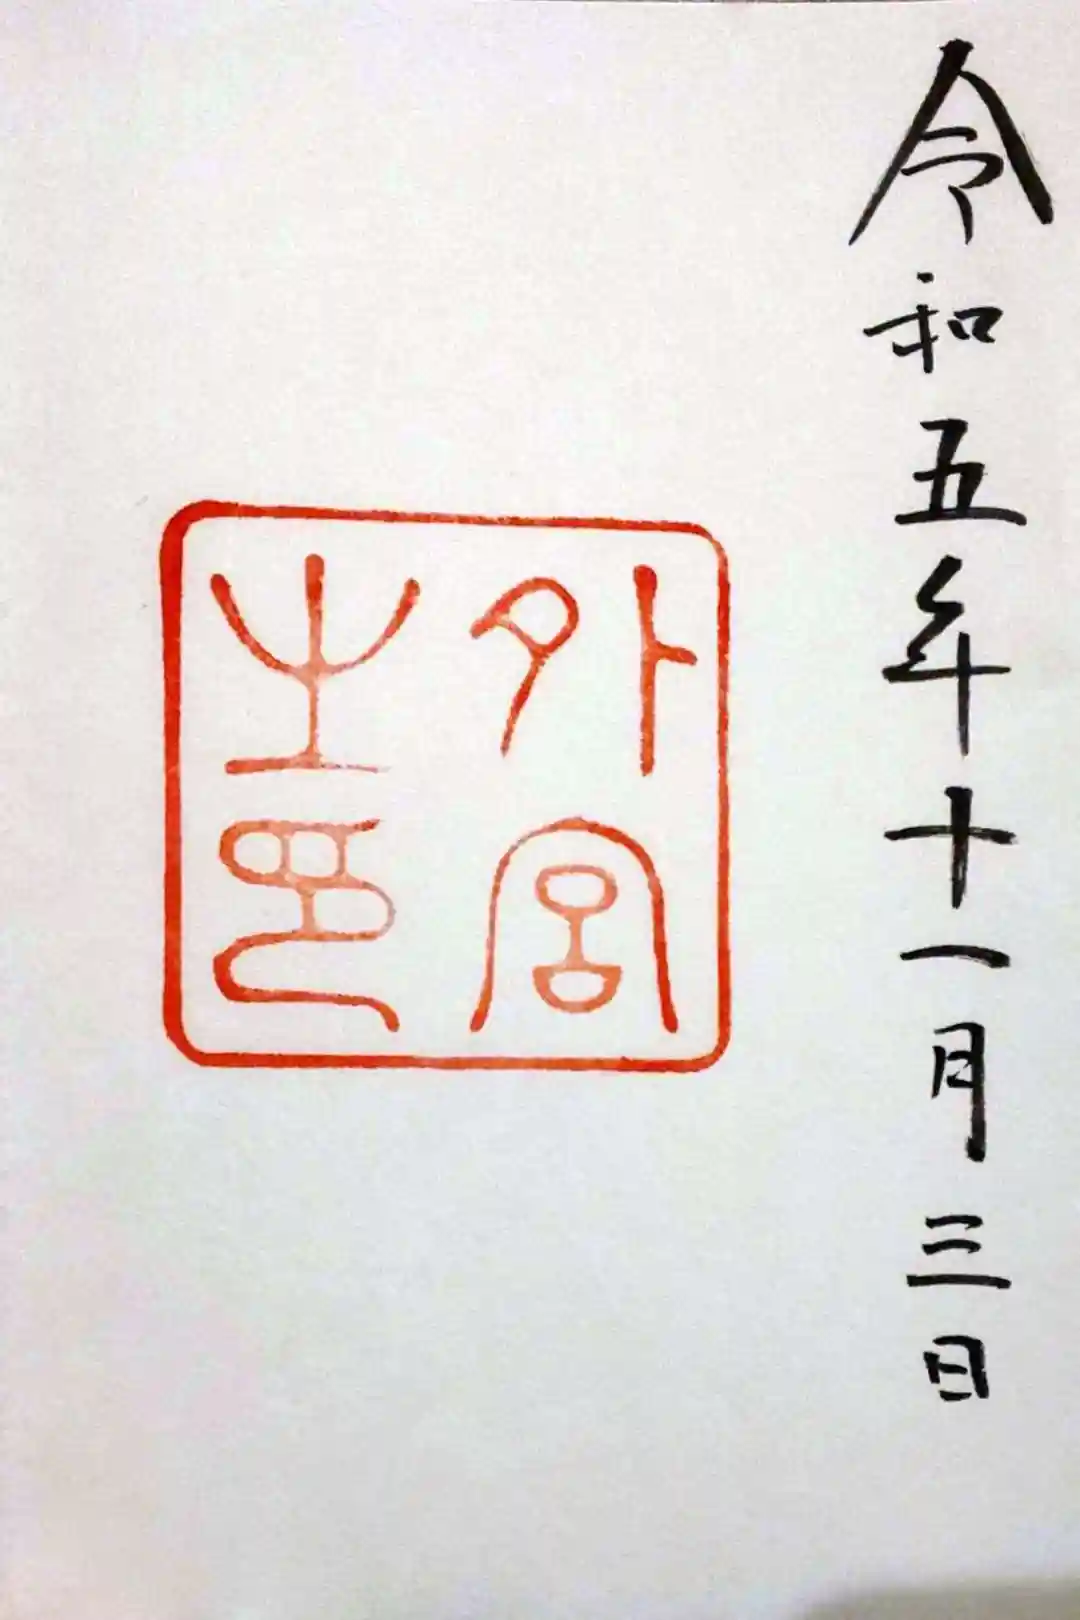 令和五年十一月三日
外宮
之印